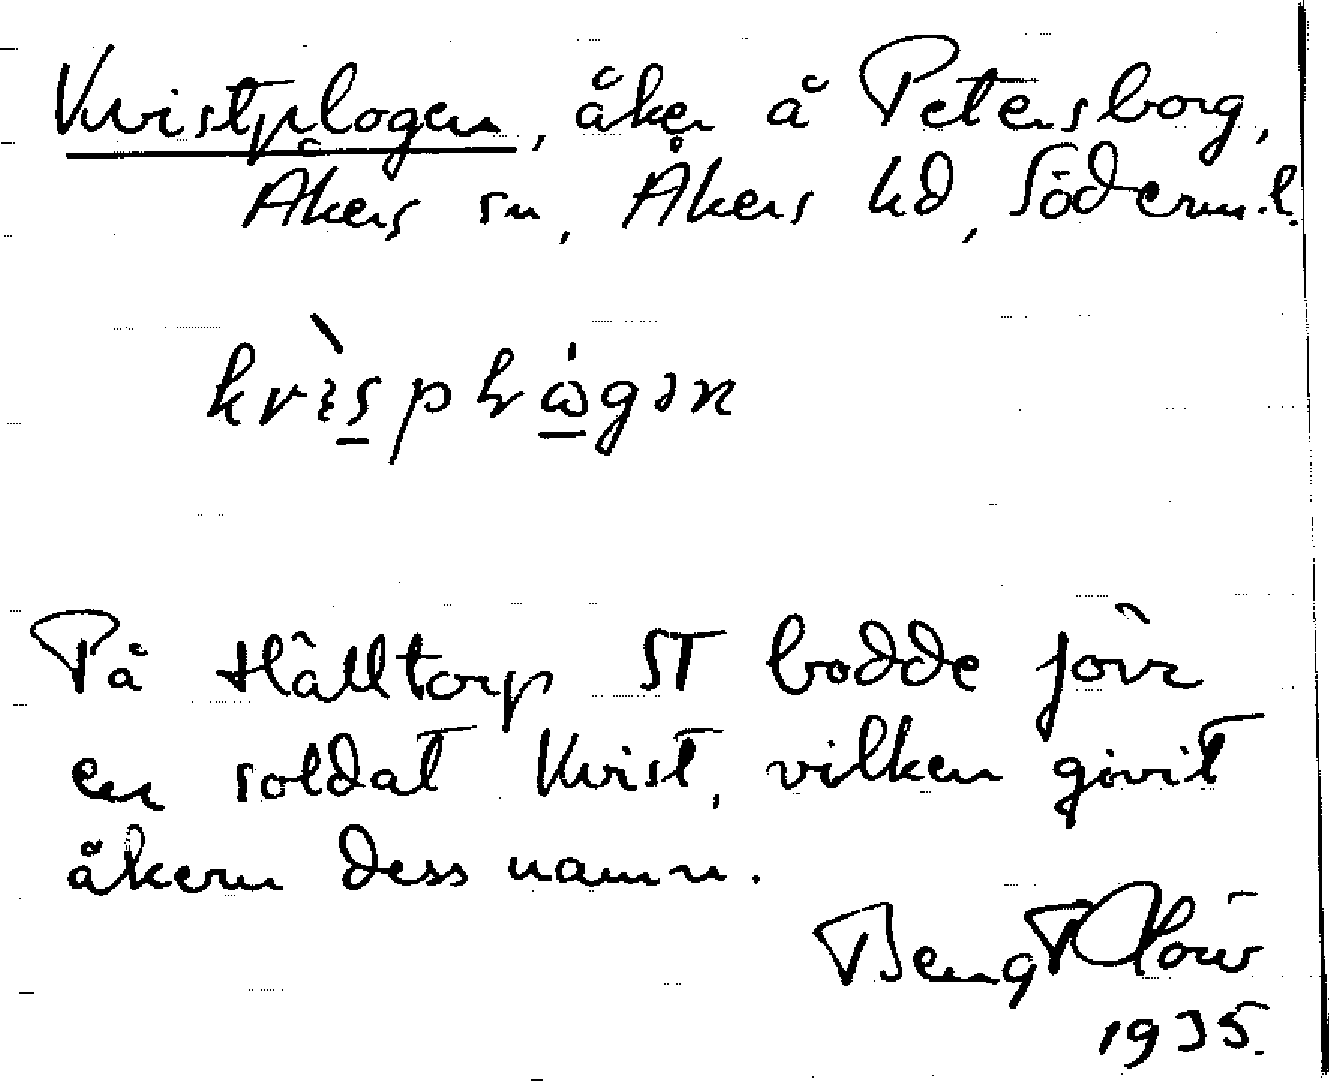 Kvistplogen, åker å Petersborg,
Åkers sn, Åkers hd, Söderm.l.
På Hälltorp ST bodde förr
en soldat Kvist, vilken givit
åkern dess namn.
Bengt
1935.